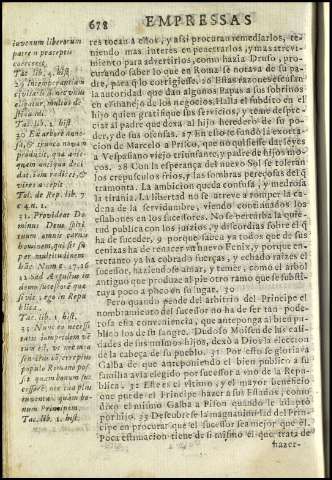 678 EMPRESSAS
iuvenum liberatum
patre praeceptis
coerceret.
Tac. lib. 4. hist.
29 Intemperantiam
civitatis, donec unus
eligatur, multos de-
stinandi.
Tac. lib. 2. hist.
30 Ex arbore annosa,
& trunco novam
producit, qua ante-
quam antiqua deci-
dat, iam radices, &
vires accepit.
Tol. de Rep. lib. 7.
c. 4. n. 1.
31. Provideat Do-
minus Deus spiri-
tuum omnis carnis
hominem, qui sit su-
per multitudinem
hãc. Num. c. 27. 16
32 Sed Augustus in
domo successorẽ que
si vit, ego in Repu-
blica.
Tac. lib. 1. hist.
33 Nunc eo necessi-
tatis iampridem ve
tum est, vt nec mea
senectus cõferre plus
populo Romano pos-
sit quam bonum suc
cessorem, nec tua plus
iuventa, quàm bo-
num Principem.
Tac. lib. 1. hist.
res tocan a ellos, y assi procuran remediarlos, te-
niendo mas interes en penetrarlos, y mas atrevi-
miento para advertirlos, como hazia Druso, pro-
curando saber lo que en Roma se notava de su pa-
dre, para q̃ lo corrigiesse. 28 Estas razones escusan
la autoridad que dan algunos Papas a sus sobrinos
en el manejo de los negocios. Halla el subdito en el
hijo quien gratifique sus servicios, y teme despre-
ciar al padre que dexa al hijo heredero de su po-
der, y de sus ofensas. 27 En esto se fundó la exorta-
cion de Marcelo a Prisco, que no quisiesse dar leyes
a Vespasiano viejo triunfante, y padre de hijos mo-
ços. 28 Con la esperança del nuevo Sol se toleran
los crepusculos frios, y las sombras pereçosas del q̃
tramonta. La ambicion queda confusa, y medrosa
la tirania. La libertad no se atreve a romper la ca-
dena de la servidumbre, viendo continuados los
eslabones en los sucessores. No se perturba la quie-
tud publica con los juizios, y discordias sobre el q̃
ha de suceder, 9 porque saben ya todos que de sus
cenizas ha de renacer vn nuevo Fenix, y porque en-
tretanto ya ha cobrado fuerças, y echado raizes el
sucessor, haziendose amar, y temer, como el arbol
antiguo que produce al pie otro ramo que se substi-
tuya poco a poco en su lugar. 30
Pero quando pende del arbitrio del Principe el
nombramiento del sucessor no ha de ser tan pode-
rosa esta conveniencia, que anteponga al bien pu-
blico los de su sangre. Dudoso Moisen de las cali-
dades de sus mismos hijos, dexó a Dios la eleccion
de la cabeça de su pueblo. 31 Por esto se gloriava
Galba de que anteponiendo el bien publico a su
familia avia elegido por sucessor a vno de la Repu-
blica. 32 Este es el vltimo, y el mayor beneficio
que puede el Principe hazer a sus Estados, como
dixo el mismo Galba a Pison quando le adoptó
por hijo. 33 Descubrese la magnanimidad del Prin-
cipe en procurar que el sucessor sea mejor que él.
Poca estimacion tiene de si mismo el que trata de
hazer-